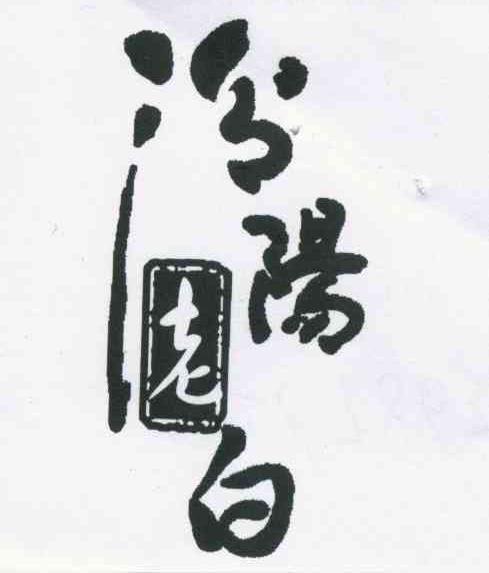 汾陽
老
白